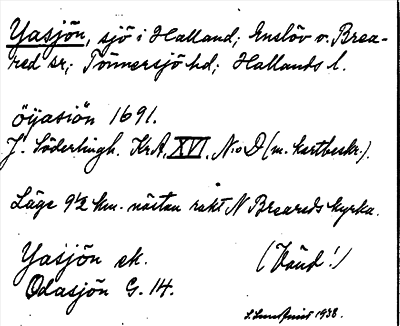 Yasjön, sjö i Halland; Enslöv o. Brea-
red sr; Tönnersjö hd; Hallands l.
öÿasiön 1691.
J. Söderlingh. KrA, XVI, N:o D (m. kartbeskr.).
Läge 9½ km. nästan rakt N Breareds kyrka.
Yasjön ek. (Vänd!)
Odasjön G. 14.
1938.